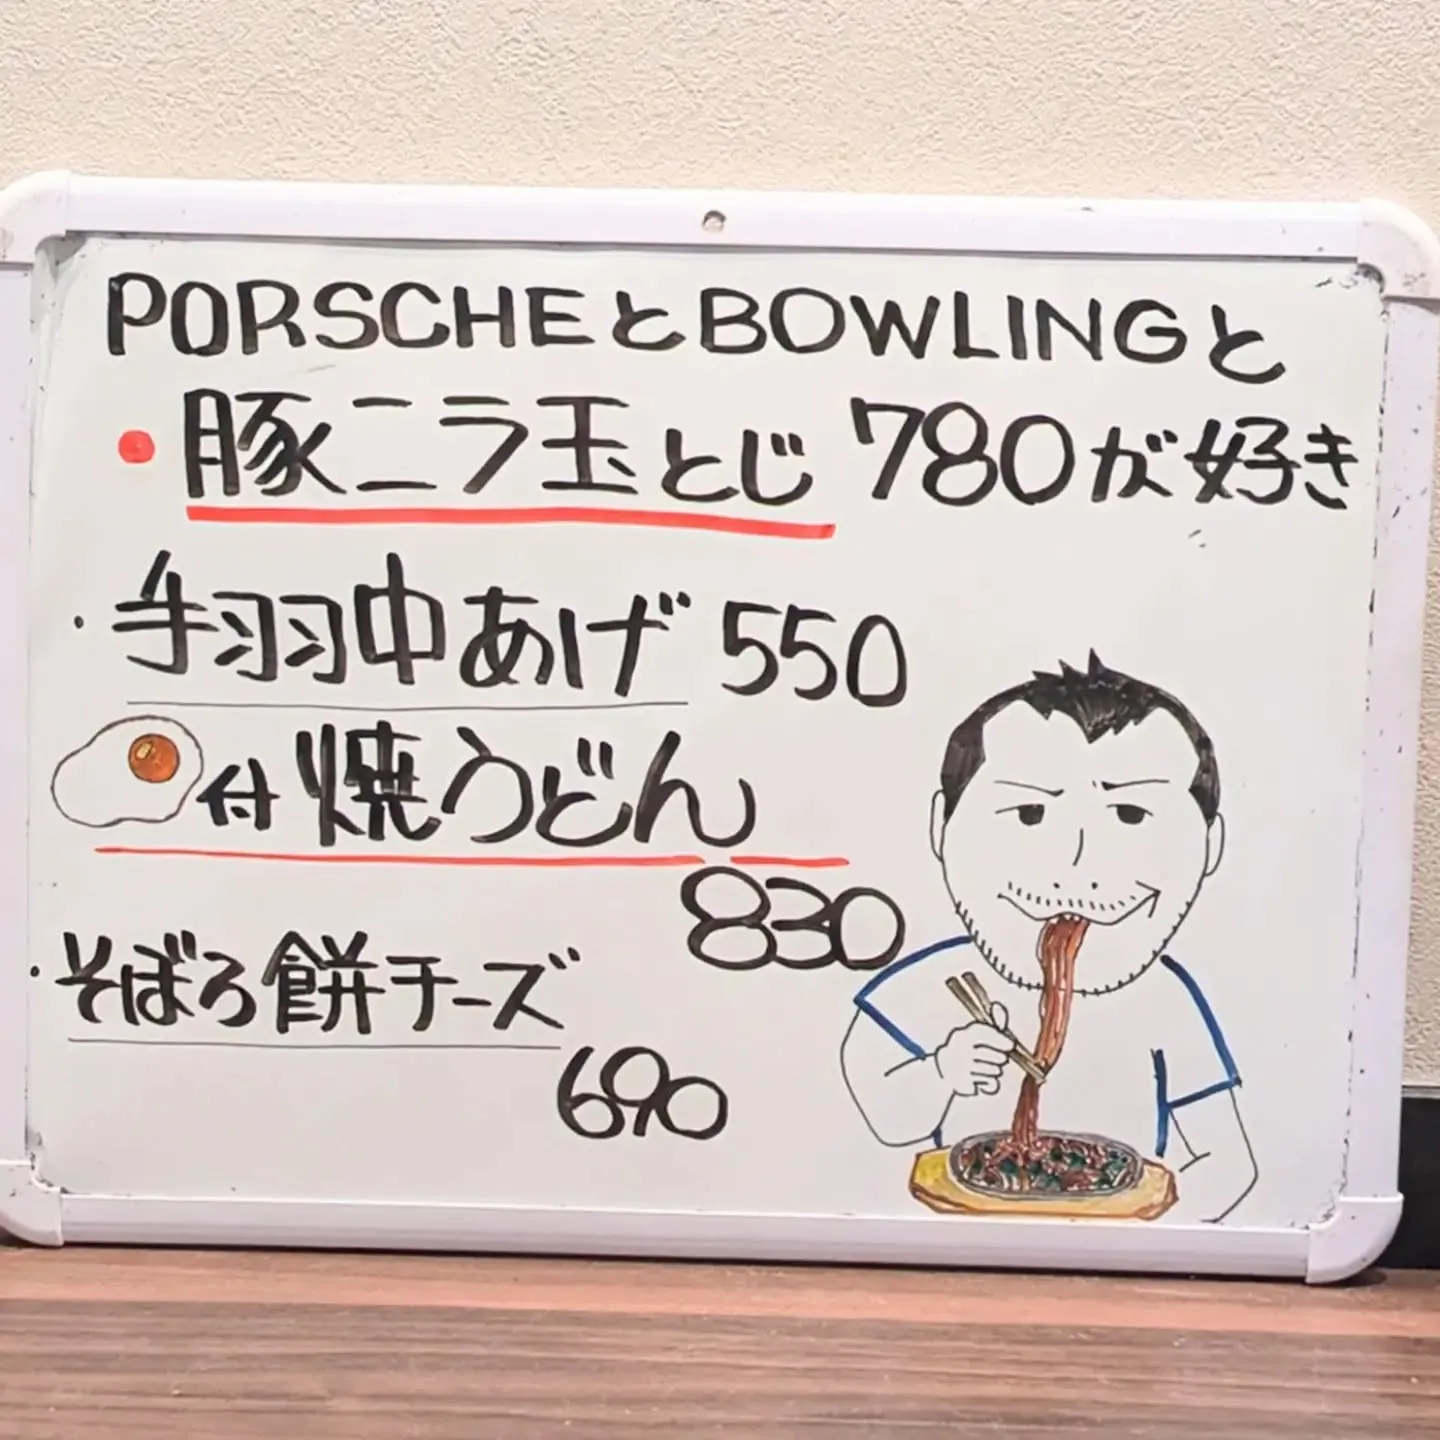 PORSCHEとBOWLINGと
・豚ニラ玉とじ 780が好き
・手羽中あげ 550
付焼うどん
830
・そぼろ餅チーズ
690